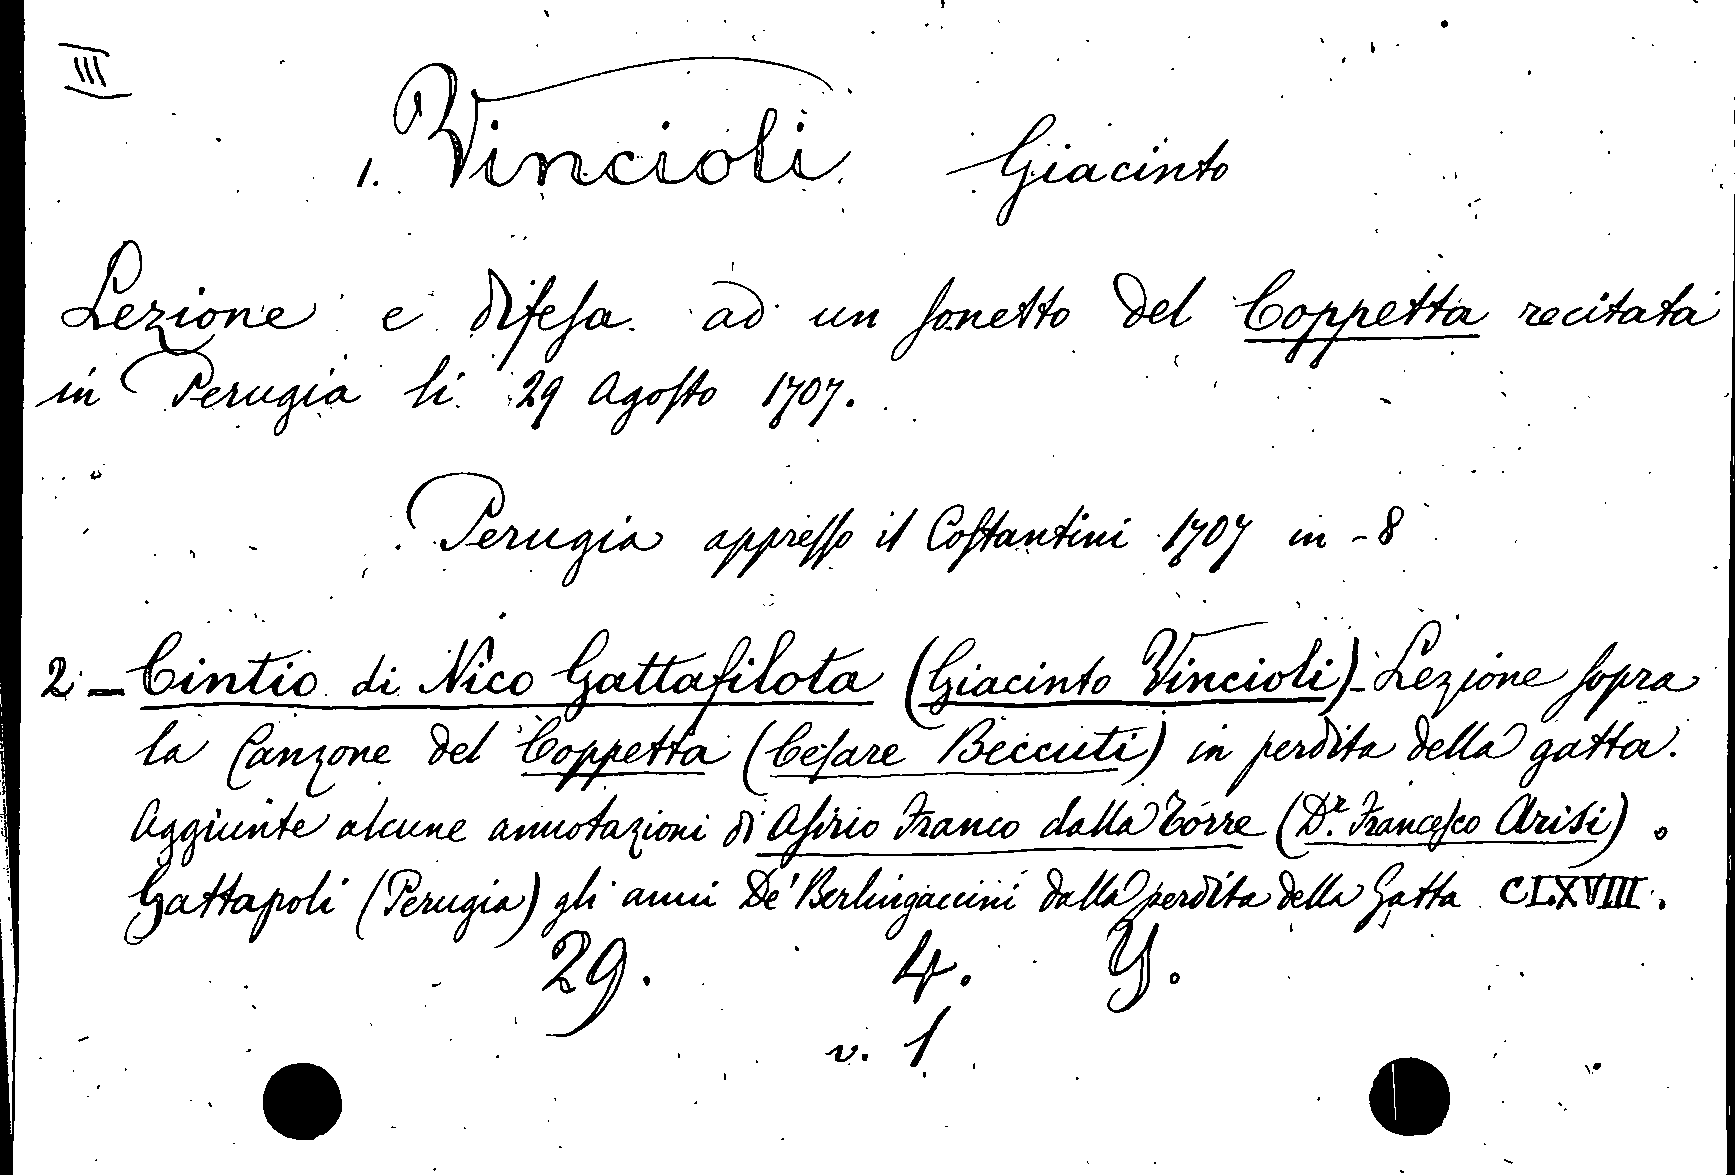 III
1. Vincioli Giacinto
Lezione e difesa ad un sonetto del Coppetta recitata
in Perugia li 29 Agosto 1707.
Perugia appresso il Costantini 1707 in-8
2 - Cintio di Nico Gattafilota (Giacinto Vincioli) - Lezione sopra
la Canzone del Coppetta (Cesare Beccuti) in perdita della gatta.
Aggiunte alcune annotazioni di Asirio Franco dalla Torre (Dr. Francesco Arisi).
Gattapoli (Perugia) gli anni De' Berlingaccini dalla perdita della Gatta CLXVIII.
29. 4. Y.
v. 1